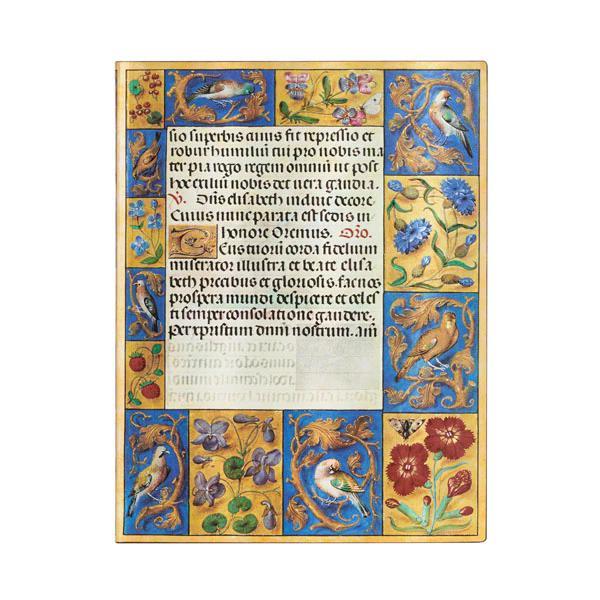 sio superbis cuius fit repressio et
robur humiliũ tui pro nobis ma
ter pia rogo regem omniũ ut post
hoc exiliũ nobis det uera gaudia.
V. Dñs elisabeth induit decore.
Cuius nunc parata est sedis in
honore Oremus. Orõ.
Deus tuorũ corda fidelium
miserator illustra et beate elisa
beth precibus et gloriosis fac nos
prospera mundi despicere et celes
ti semper consolatione gaudere.
Per xpristum dñm nostrum. am